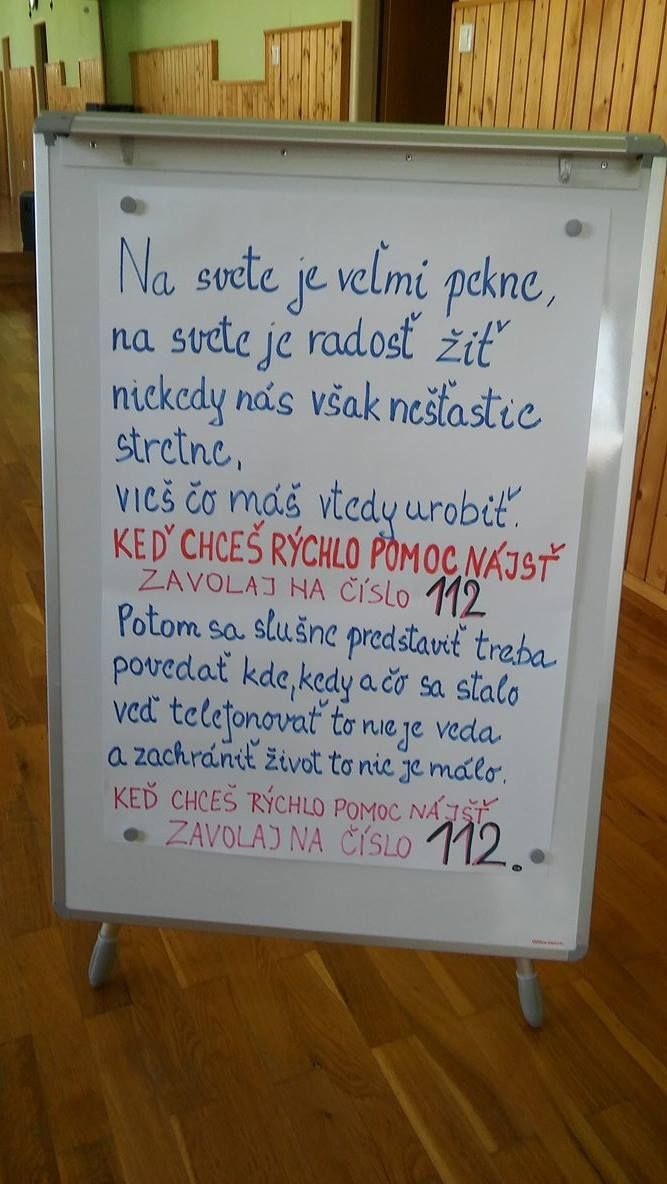 Na svete je veľmi pekne,
na svete je radosť žiť
niekedy nás však nešťastie
stretne,
vieš čo máš vtedy urobiť.
KEĎ CHCEŠ RÝCHLO POMOC NÁJSŤ
ZAVOLAJ NA ČÍSLO 112
Potom sa slušne predstaviť treba
povedať kde, kedy a čo sa stalo
veď telefonovať to nie je veda
a zachrániť život to nie je málo.
KEĎ CHCEŠ RÝCHLO POMOC NÁJŠŤ
ZAVOLAJ NA ČÍSLO 112.